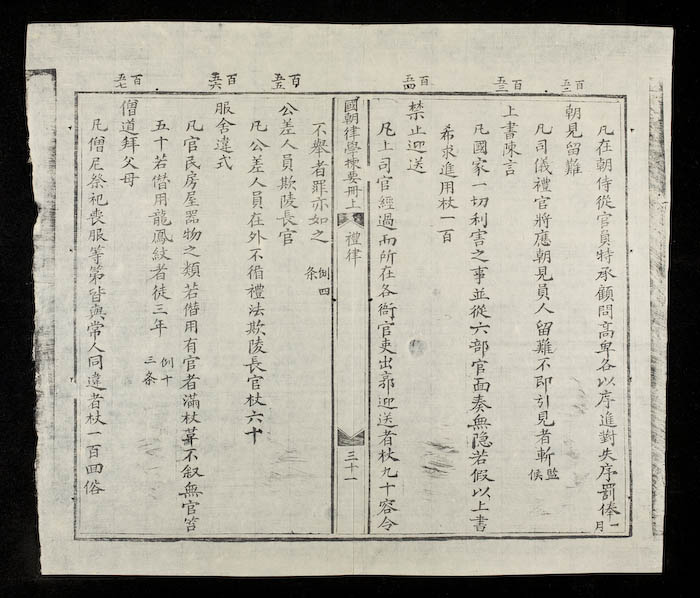 百五二
凡在朝侍從官員特承顧問高卑各以序進對失序罰俸一月
朝見留難
百五三
凡司儀禮官將應朝見員人留難不即引見者斬監候
上書陳言
凡國家一切利害之事並從六部官面奏無隐若假以上書
希求進用杖一百
百五四
禁止迎送
凡上司官經過而所在各衙官吏出郭迎送者杖九十容令
國朝律學揀要冊上 禮律 三十一
不舉者罪亦如之例四条
百五五
公差人員欺陵長官
凡公差人員在外不循禮法欺陵長官杖六十
百五六
服舍違式
凡官民房屋器物之類若僣用有官者滿杖革不叙無官笞
五十若僣用龍鳳紋者徒三年例十三条
百五七
僧道拜父母
凡僧尼祭祀喪服等第皆與常人同違者杖一百回俗